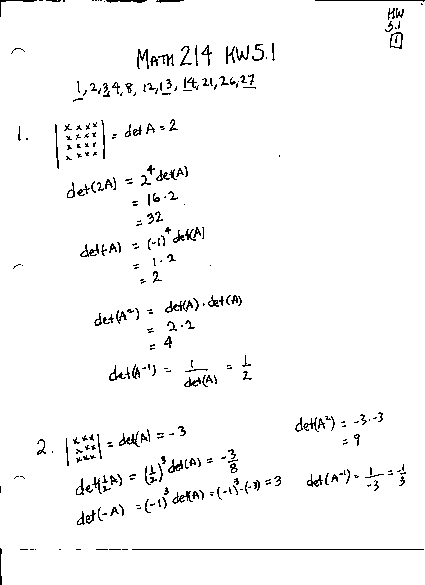 HW
5.1
1
MATH 214 HW 5.1
1, 2, 3, 4, 8, 12, 13, 14, 21, 26, 27
1. |x x x x
x x x x
x x x x
x x x x| = det A = 2
det(2A) = 2^4 det(A)
= 16·2
= 32
det(-A) = (-1)^4 det(A)
= 1·2
= 2
det(A²) = det(A)·det(A)
= 2·2
= 4
det(A⁻¹) = 1/det(A) = 1/2
2. |x x x
x x x
x x x| = det(A) = -3
det(½A) = (½)³ det(A) = -3/8
det(-A) = (-1)³ det(A) = (-1)³·(-3) = 3
det(A²) = -3·-3
= 9
det(A⁻¹) = 1/-3 = -1/3